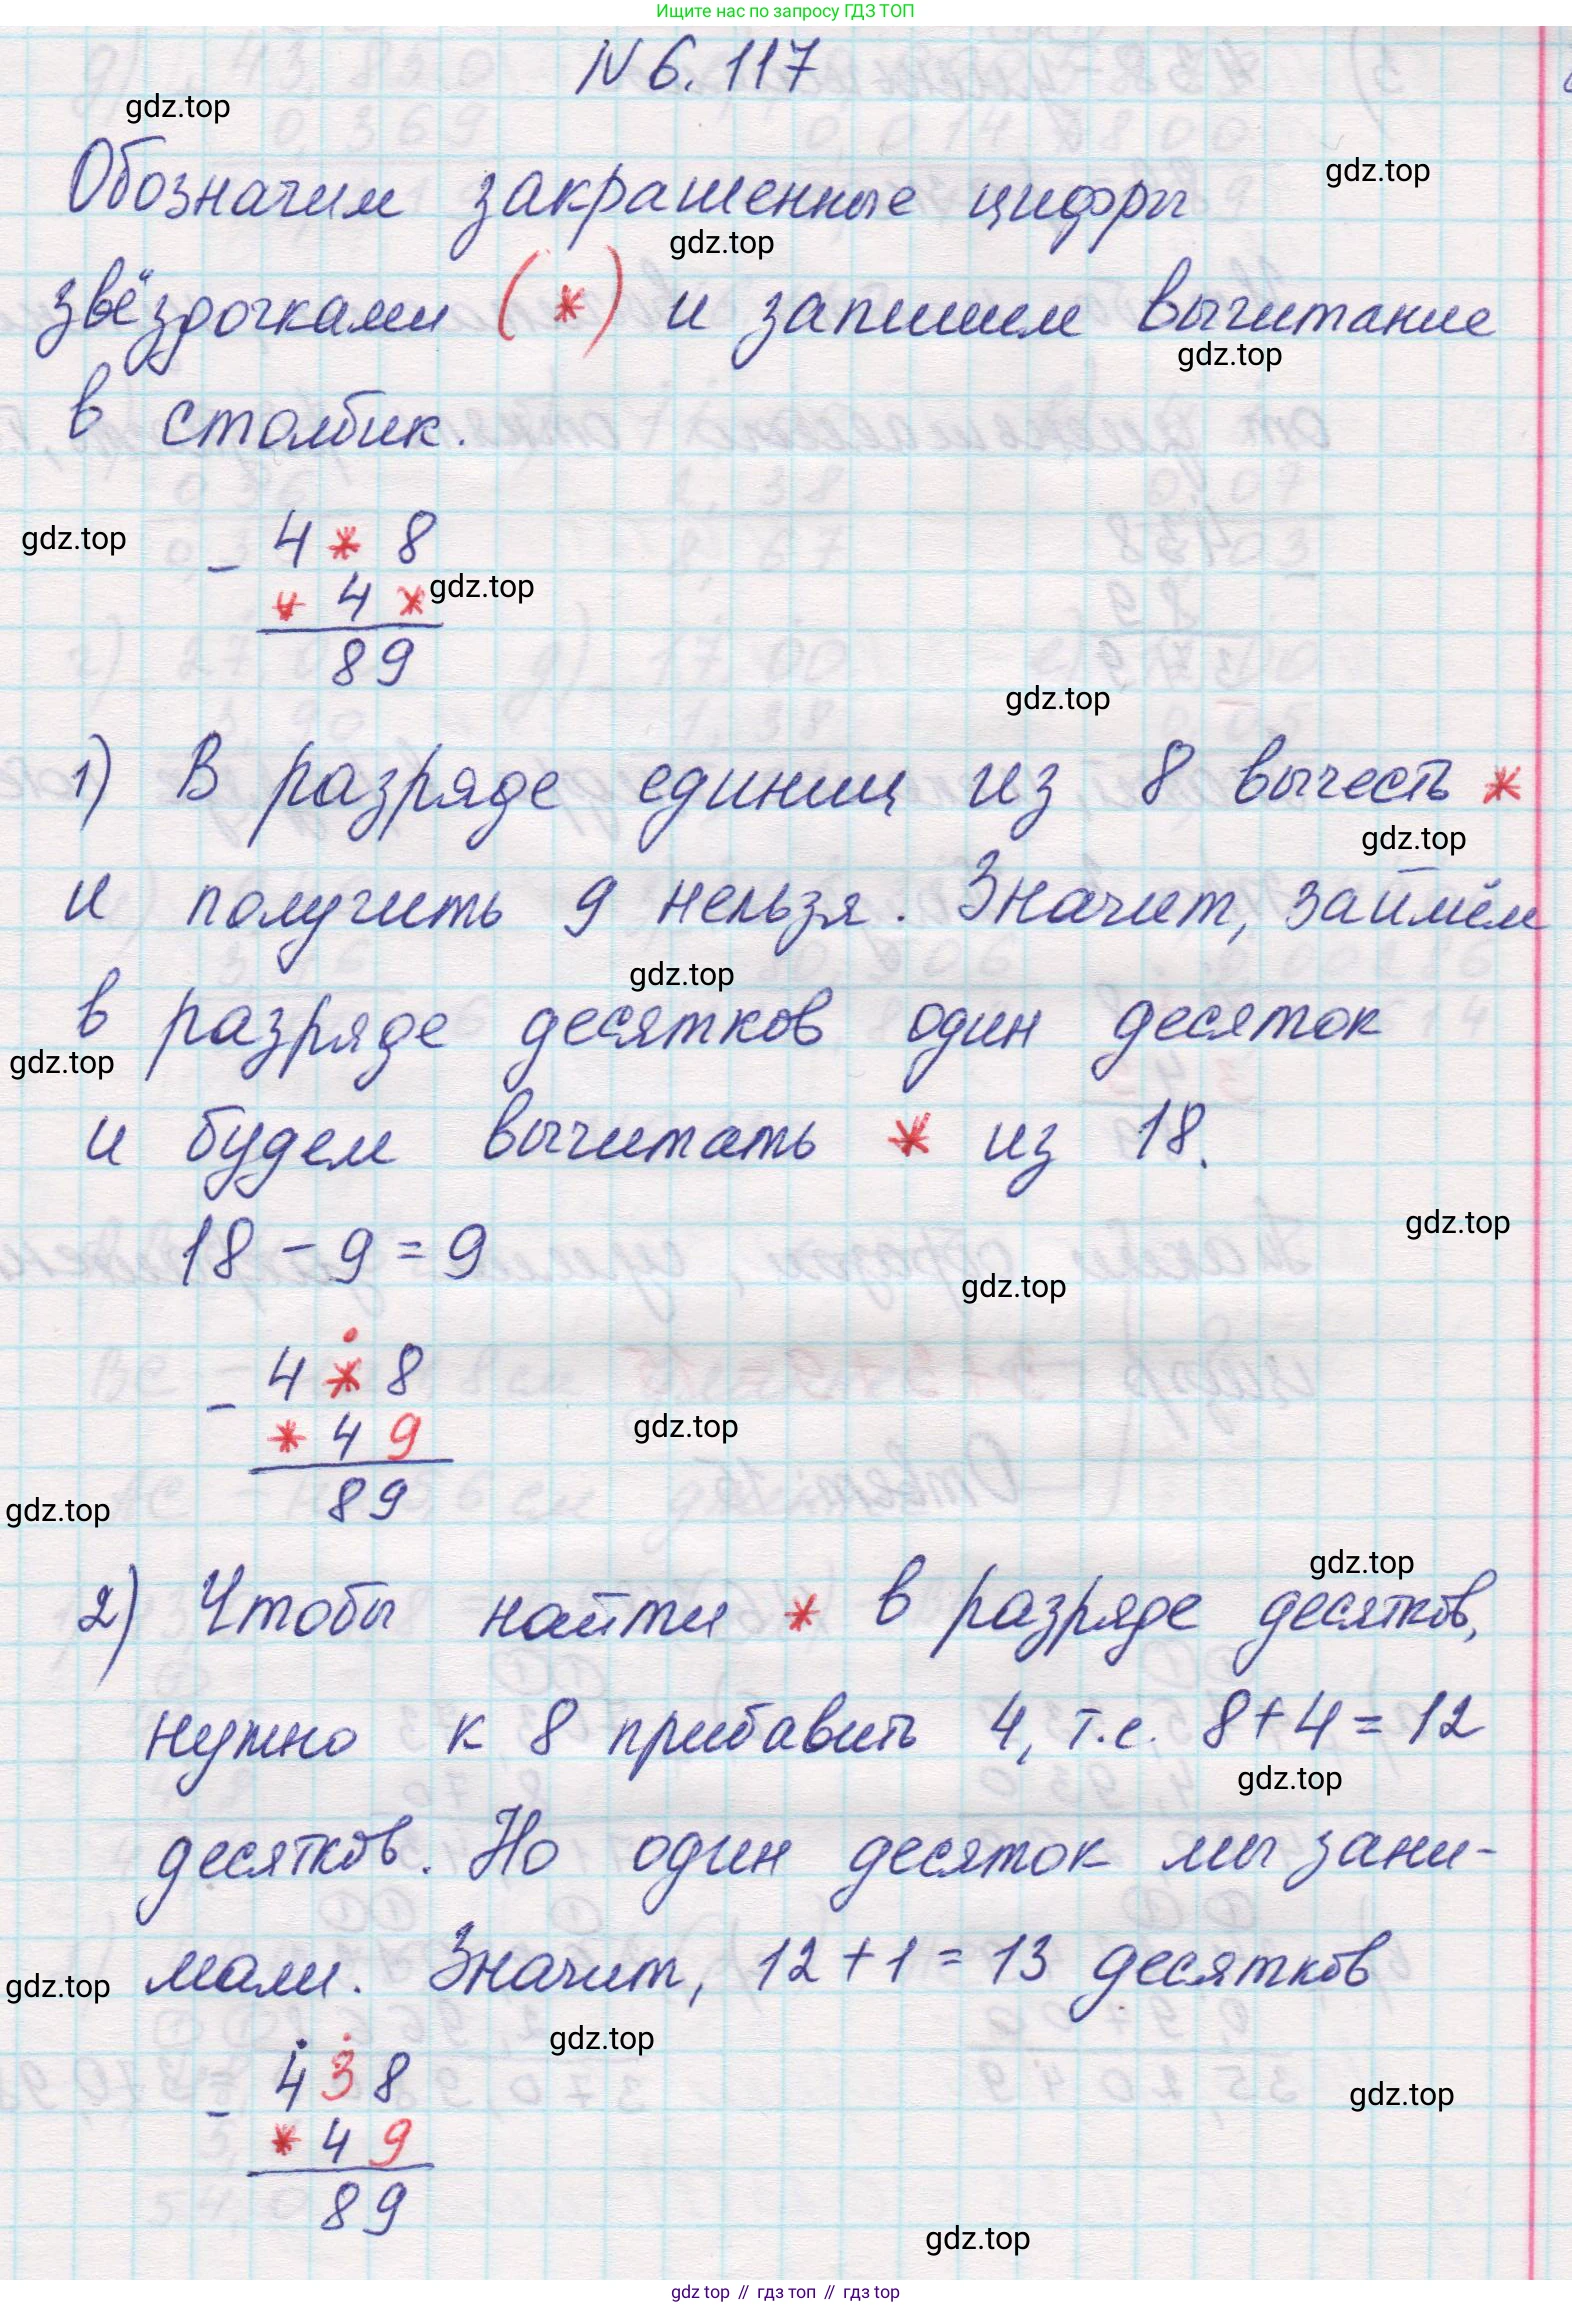 Ищите нас по запросу ГДЗ ТОП
N 6. 117
gdz.top
Обозначим закрашенные цифры
gdz.top
gdz.top
звёздочками (*) и запишем вычитание
gdz.top
в столбик.
gdz.top
- 4 * 8
* 4 *
gdz.top
89
gdz.top
1) В разряде единиц из 8 вычесть *
gdz.top
и получить 9 нельзя. Значит, займём
gdz.top
в разряде десятков один десяток
gdz.top
и будем вычитать * из 18.
gdz.top
18 - 9 = 9
gdz.top
- 4 * 8
* 4 9
gdz.top
89
gdz.top
gdz.top
2) Чтобы найти * в разряде десятков,
нужно к 8 прибавить 4, т.е. 8+4=12
gdz.top
десятков. Но один десяток мы зани-
мали. Значит, 12+1=13 десятков
gdz.top
gdz.top
- 4 3 8
gdz.top
* 4 9
89
gdz.top
gdz top // гдз топ // гдз top